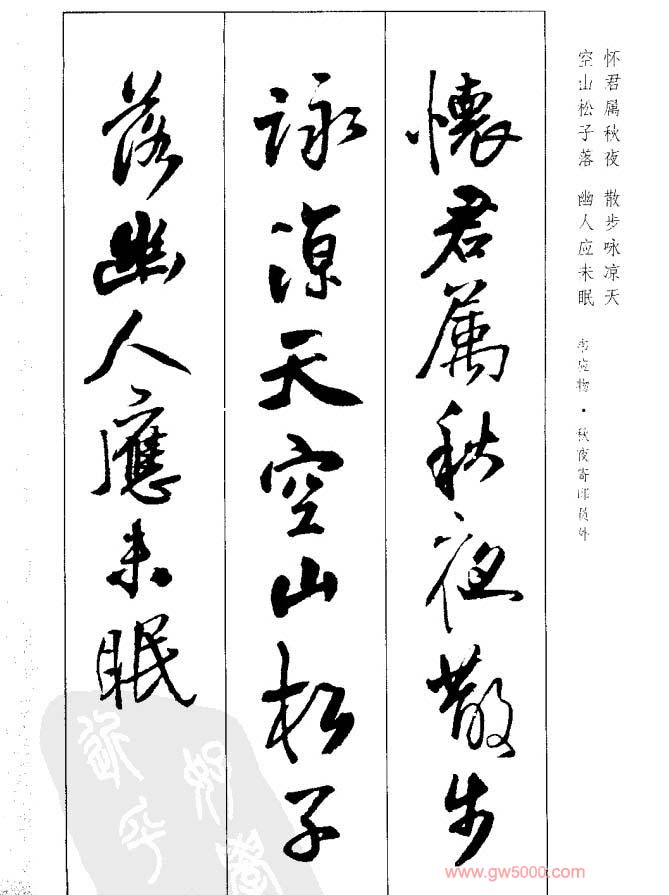 怀君属秋夜 散步咏凉天
空山松子落 幽人应未眠
韦应物·秋夜寄邱员外
懷君属秋夜散步
詠涼天空山松子
落幽人應未眠
www.gw5000.com